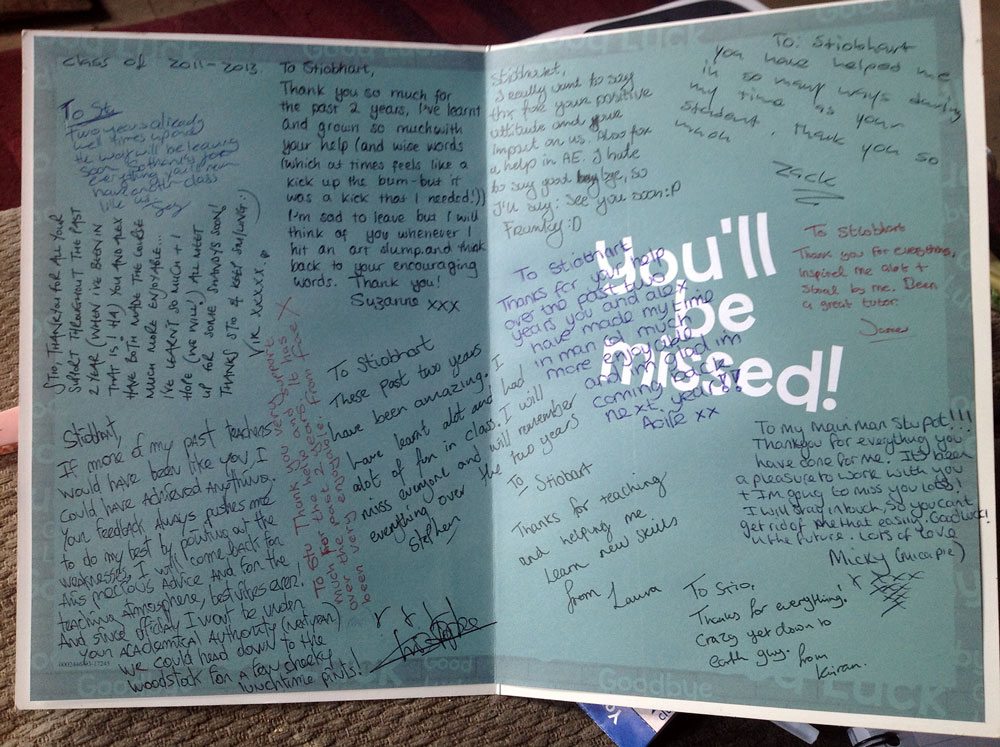 class of 2011-2013.
To Stu
Two years already
well times up and
be leaving
soon. So thanks for
everything you'll never
have another class
like us.
To Stiobhart,
Thank you so much for
the past 2 years, I've learnt
and grown so much with
your help (and wise words
(which at times feels like a
kick up the bum - but it
was a kick that I needed!))
I'm sad to leave but I will
think of you whenever I
hit an art slump and think
back to your encouraging
words. Thank you!
Suzanne xxx
STIO, THANKYOU FOR ALL YOUR
SUPORT THROUGHOUT THE PAST
2 YEAR (WHEN I'VE BEEN IN
THAT IS!) HA! YOU AND ALEX
HAVE BOTH MADE THE COURSE
MUCH MORE ENJOYABLE...
I'VE LEARN'T SO MUCH + I
HOPE (WE WILL!) ALL MEET
UP FOR SOME SHANDYS SOON!
THANKS STIO & KEEP SMILING :)
VIK XXXXX
Stiobhart,
If more of my past teachers
would have been like you I
could have achieved Anything.
Your feedback Always pushes me
to do my best by pointing out the
weaknesses, I will come back for
this precious Advice and for the
teaching atmosphere, best vibes ever!
And since officialy I wont be under
your Academical Authority
we could head down to the
Woodstock for a few cheeky
lunchtime pints!
To Stu Thank you very
much for the help and support
over the past 2 years it has
been very enjoyable.
To Stiobhart
These past two years
have been amazing. I
have learnt alot and had
alot of fun in class. I will
miss everyone and will remember
everything over the two years
Stephen
Stiobhart,
I really want to say
thx for your positive
attitude and your
impact on us. Also for
a help in AE. I hate
to say good bye, so
I'll say: See you soon :P
Franky :D
To: Stiobhart
you have helped me
in so many ways during
my time as your
student. Thank you so
much
Zack
To Stiobhart
Thanks for your help
over the past two
years you and alex
have made my time
in man a much
more enjoyable
and im glad im
coming back
next year!!
xx
You'll
be
missed!
To Stiobhart
Thank you for everything,
inspired me alot +
stood by me. Been
a great tutor.
James
To Stiobart
Thanks for teaching
and helping me
learn new skills
from Laura
To my main man Stu pot!!!
Thankyou for everything you
have done for me. It's been
a pleasure to work with you
+ I'm going to miss you lots!
I will stay in touch, so you cant
get rid of me that easily. Good luck!
in the future. Lots of love
Micky (mica pie)
To Stio,
Thanks for everything!
Crazy yet down to
earth guy. from
Kiran.
Good
Goodbye
Good Luck